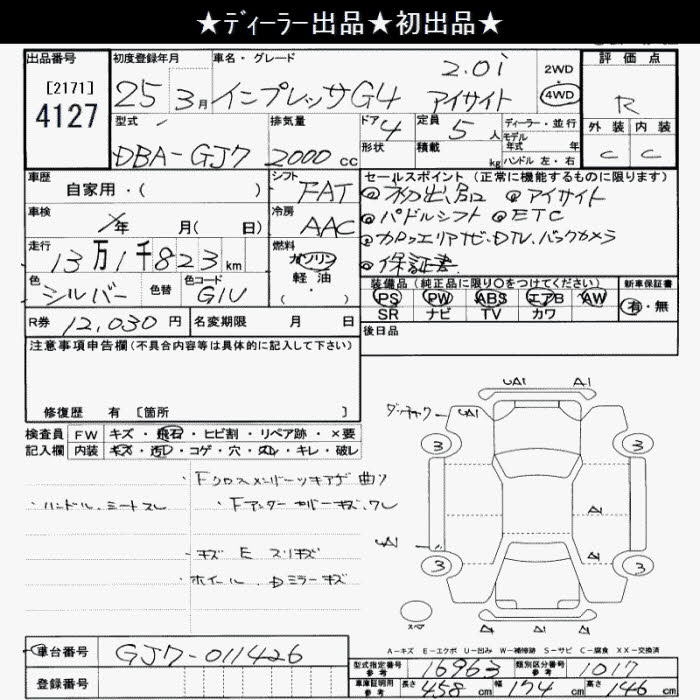 ★ディーラー出品★初出品★
出品番号
[2171]
4127
初度登録年月
25 3月
車名・グレード
インプレッサG4
2.0i
アイサイト
2WD
・
4WD
評価点
R
外装 内装
C C
型式
DBA-GJ7
排気量
2000 cc
ドア 4
形状
定員 5 人
積載 kg
ディーラー・並行
モデル
年式 年
ハンドル 左・右
車歴
自家用・( )
シフト
FAT
セールスポイント(正常に機能するものに限ります)
◎初出品 ◎アイサイト
◎パドルシフト ◎ETC
◎保証書
車検
年 月( 日)
冷房
AAC
走行
13万1千823km
燃料
ガソリン
軽油
( )
色
シルバー
色替
色コード
G1U
装備品(純正品に限り○をつけてください)
PS PW ABS エアB AW
SR ナビ TV カワ
新車保証書
有・無
R券 12,030円
名変期限 月 日
後日品
注意事項申告欄(不具合内容等は具体的に記入して下さい)
修復歴 有 [箇所 ]
検査員 FW キズ・飛石・ヒビ割・リペア跡・×要
記入欄 内装 キズ・汚レ・コゲ・穴・スレ・キレ・破レ
・Fクロスメンバーツキアゲ曲リ
・ハンドル、シートスレ
・Fアンダーカバーキズ、ワレ
・キズ E スリキズ
・ホイール、Dミラーキズ
UA1 A1
UA1
3 3
A1
UA1
A1
3 3
A1 A1 A1
スペア
A-キズ E-エクボ U-凹み W-補修跡 S-サビ C-腐食 XX-交換済
車台番号 GJ7-011426
登録番号
型式指定番号 参考 16963
類別区分番号 参考 1017
車庫証明用 参考 長さ 458 cm 幅 174 cm 高さ 146 cm